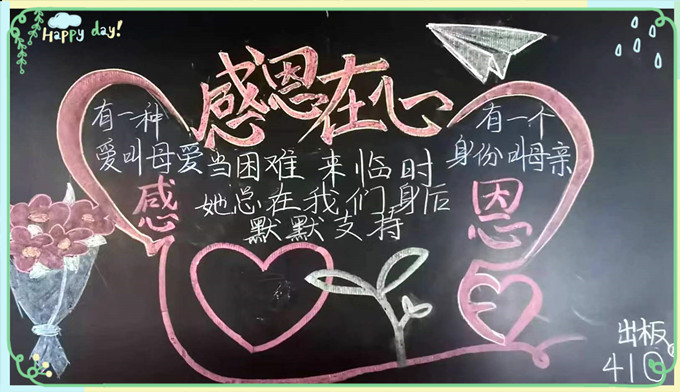 Happy day!
感恩在心
有一种
爱叫母爱
当困难来临时
她总在我们身后
默默支持
有一个
身份叫母亲
感
恩
出板
410